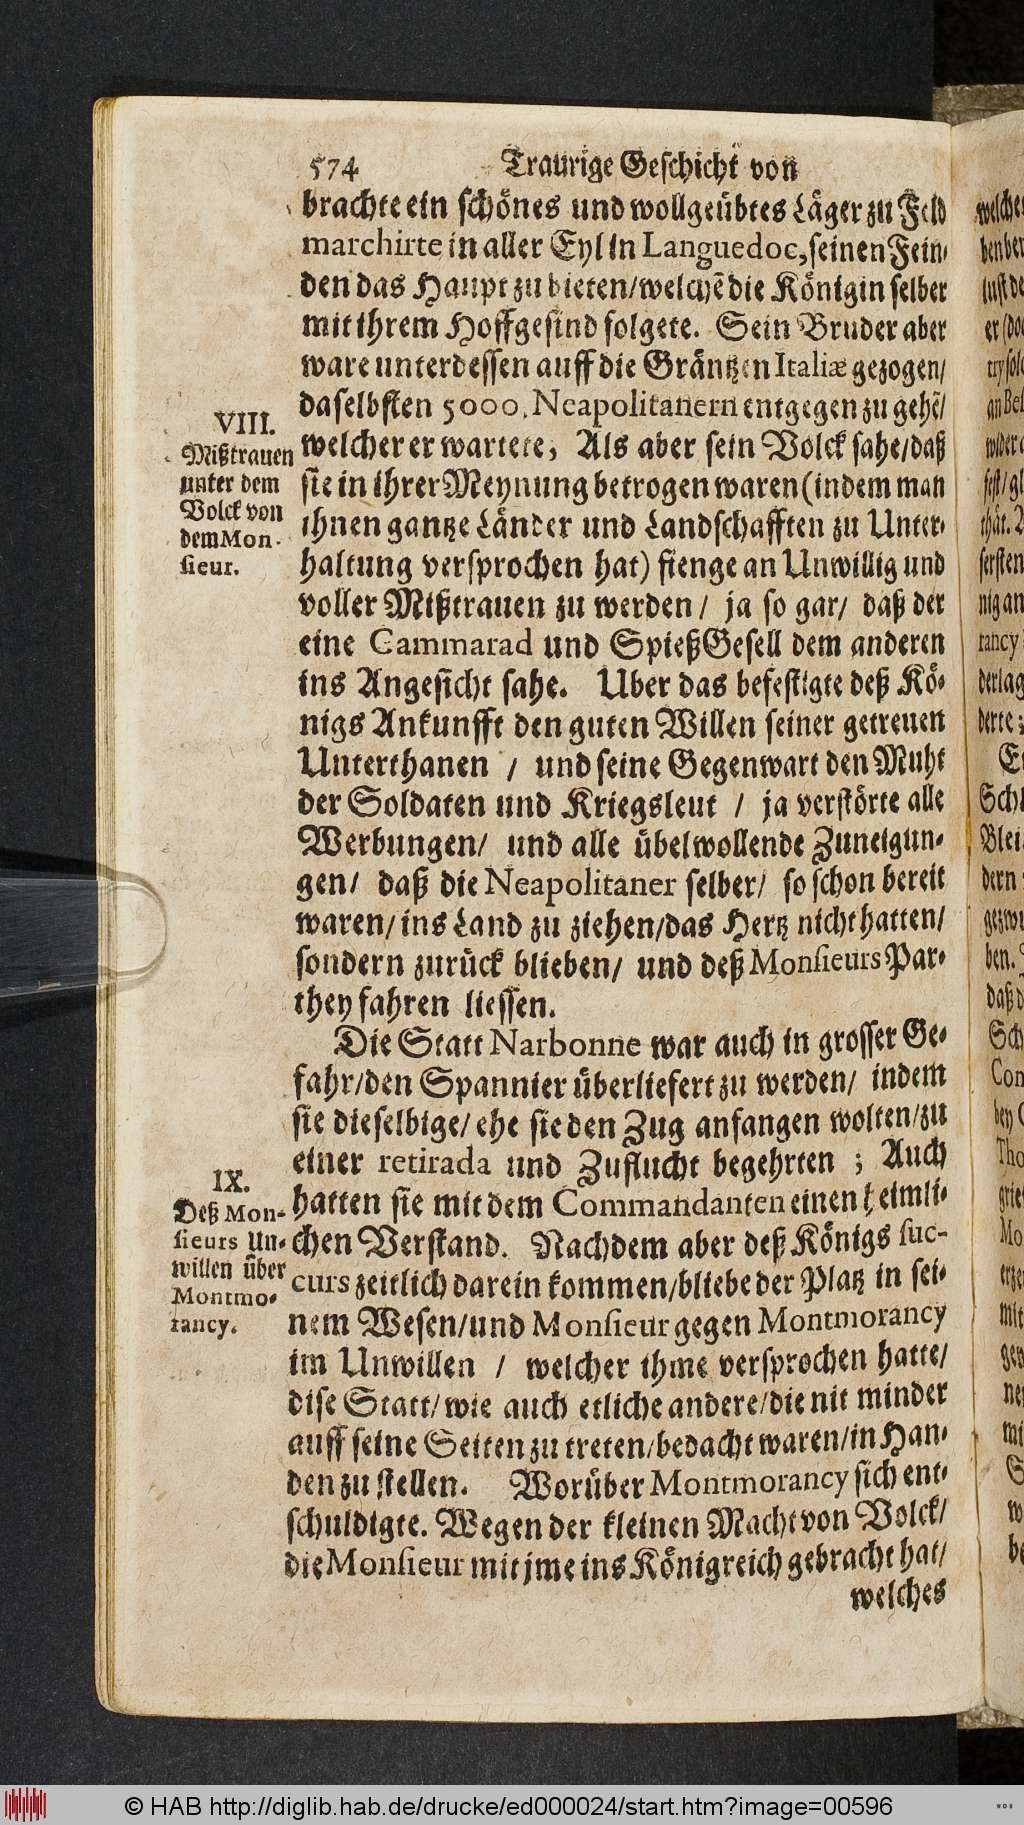 574 Traurige Geschicht von
brachte ein schönes und wollgeübtes Läger zu Feld
marchirte in aller Eyl in Languedoc, seinen Fein-
den das Haupt zu bieten/welchē die Königin selber
mit ihrem Hoffgesind folgete. Sein Bruder aber
ware unterdessen auff die Gräntzen Italiæ gezogen/
daselbsten 5000. Neapolitanern entgegen zu gehē/
welcher er wartete, Als aber sein Volck sahe/daß
sie in ihrer Meynung betrogen waren (indem man
ihnen gantze Länder und Landschafften zu Unter-
haltung versprochen hat) fienge an Unwillig und
voller Mißtrauen zu werden/ ja so gar/ daß der
eine Cammarad und SpießGesell dem anderen
ins Angesicht sahe. Uber das befestigte deß Kö-
nigs Ankunfft den guten Willen seiner getreuen
Unterthanen / und seine Gegenwart den Muht
der Soldaten und Kriegsleut / ja verstörte alle
Werbungen/ und alle übelwollende Zuneigun-
gen/ daß die Neapolitaner selber/ so schon bereit
waren/ins Land zu ziehen/das Hertz nicht hatten/
sondern zurück blieben/ und deß Monsieurs Par-
they fahren liessen.
VIII.
Mißtrauen
unter dem
Volck von
dem Mon-
sieur.
Die Statt Narbonne war auch in grosser Ge-
fahr/den Spannier überliefert zu werden/ indem
sie dieselbige/ ehe sie den Zug anfangen wolten/zu
einer retirada und Zuflucht begehrten ; Auch
hatten sie mit dem Commandanten einen heimli-
chen Verstand. Nachdem aber deß Königs suc-
curs zeitlich darein kommen/bliebe der Platz in sei-
nem Wesen/und Monsieur gegen Montmorancy
im Unwillen / welcher ihme versprochen hatte/
dise Statt/wie auch etliche andere/die nit minder
auff seine Seiten zu treten/bedacht waren/in Han-
den zu stellen. Worüber Montmorancy sich ent-
schuldigte. Wegen der kleinen Macht von Volck/
die Monsieur mit jme ins Königreich gebracht hat/
welches
IX.
Deß Mon-
sieurs Un-
willen über
Montmo-
rancy.
© HAB http://diglib.hab.de/drucke/ed000024/start.htm?image=00596